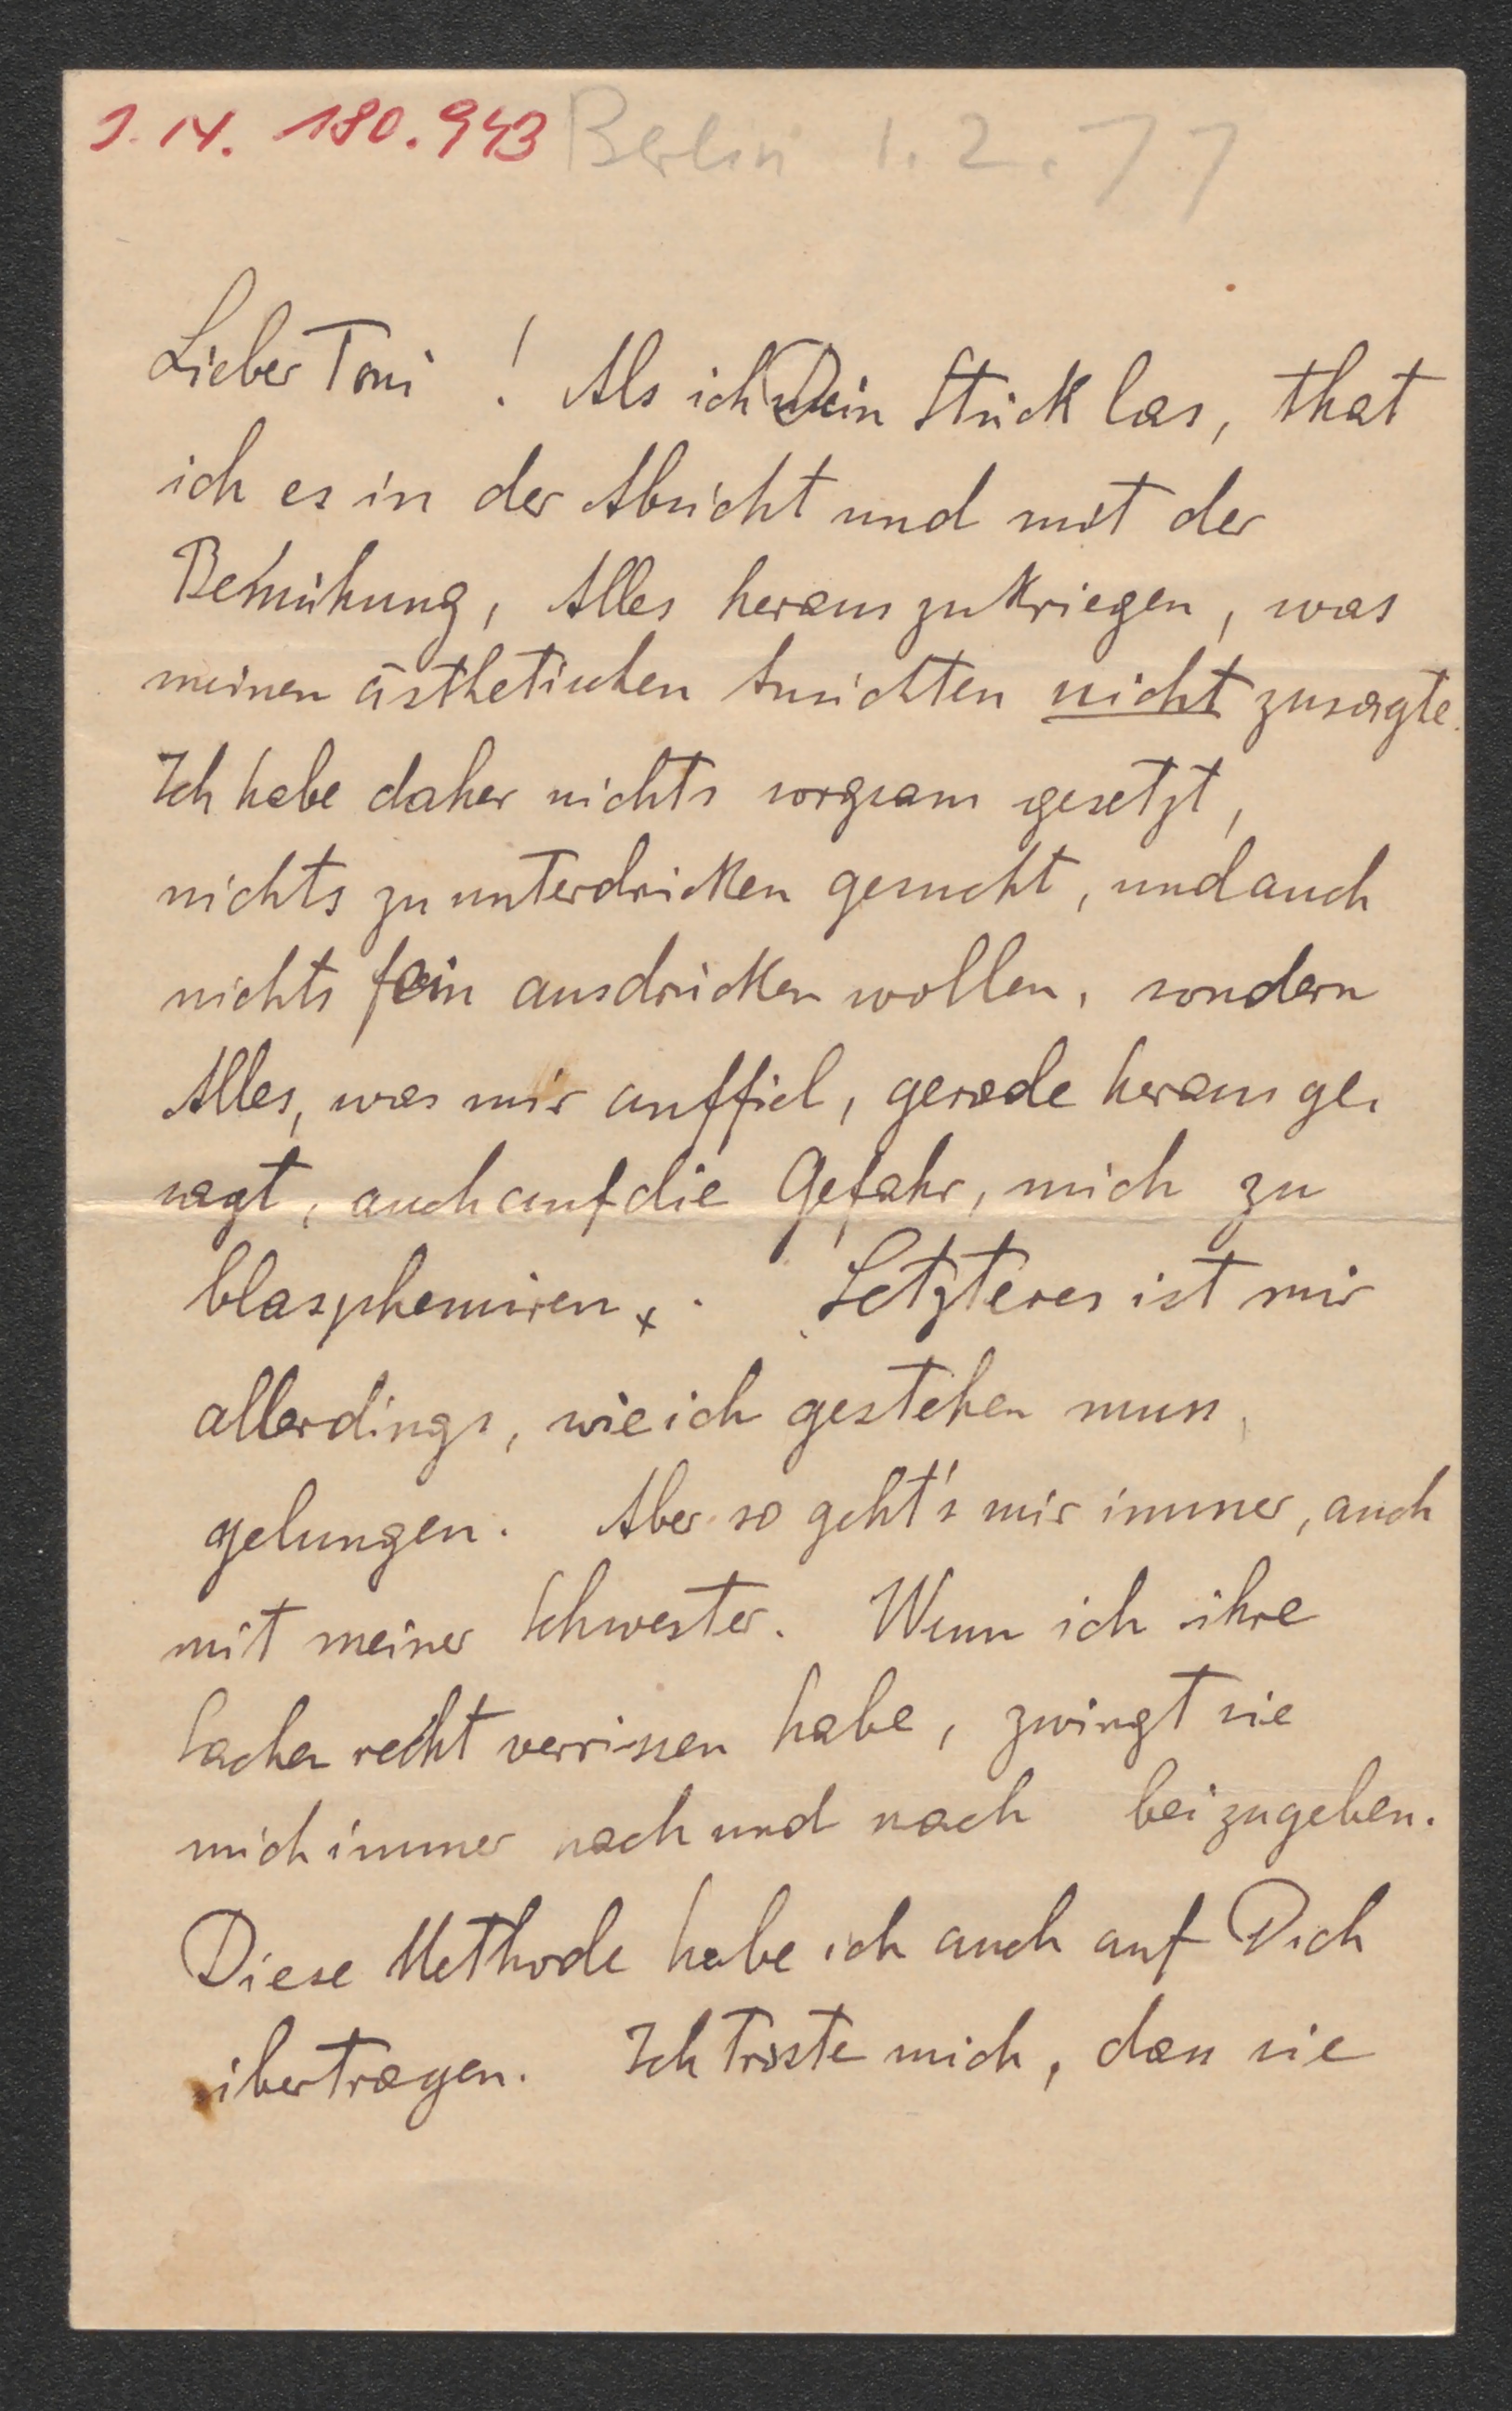 J. N. 180.943 Berlin 1.2.77
Lieber Toni! Als ich Dein Stück las, that
ich es in der Absicht und mit der
Bemühung, Alles herauszukriegen, was
meinen ästhetischen Ansichten nicht zusagte.
Ich habe daher nichts sorgsam gesetzt,
nichts zu unterdrücken gesucht, und auch
nichts fein ausdrücken wollen, sondern
Alles, was mir auffiel, gerade herausge-
sagt, auch auf die Gefahr, mich zu
blasphemiren. Letzteres ist mir
allerdings, wie ich gestehen muss,
gelungen. Aber so geht's mir immer, auch
mit meiner Schwester. Wenn ich ihre
Sachen recht verrissen habe, zwingt sie
mich immer nach und nach beizugeben.
Diese Methode habe ich auch auf Dich
übertragen. Ich tröste mich, dass sie